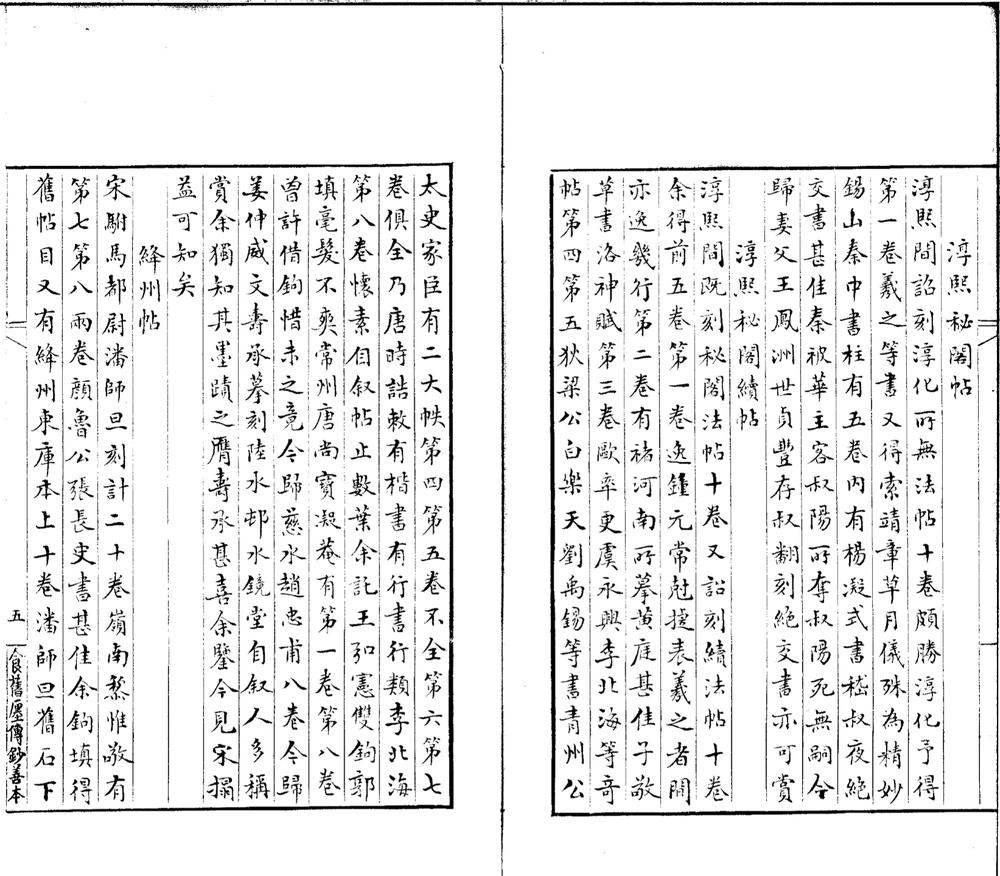 淳熙秘閣帖
淳熙間詔刻淳化所無法帖十卷頗勝淳化予得
第一卷羲之等書又得索靖章草月儀殊為精妙
錫山秦中書柱有五卷內有楊凝式書嵇叔夜絕
交書甚佳秦被華主客叔陽所奪叔陽死無嗣今
歸妻父王鳳洲世貞豐存叔翻刻絕交書亦可賞
淳熙秘閣續帖
淳熙間既刻秘閣法帖十卷又詔刻續法帖十卷
余得前五卷第一卷逸鍾元常尅捷表羲之者開
亦逸幾行第二卷有褚河南所摹黃庭甚佳子敬
草書洛神賦第三卷歐率更虞永興李北海等奇
帖第四第五狄梁公白樂天劉禹錫等書青州公
太史家臣有二大帙第四第五卷不全第六第七
卷俱全乃唐時誥敕有楷書有行書行類李北海
第八卷懷素自敘帖止數葉余託王弘憲雙鉤郭
填毫髮不爽常州唐尚寶凝菴有第一卷第八卷
曾許借鉤惜未之竟今歸慈水趙忠甫八卷今歸
姜仲威文壽承摹刻陸水邨水鏡堂自叙人多稱
賞余獨知其墨蹟之贗壽承甚喜余鑒今見宋搨
益可知矣
絳州帖
宋駙馬都尉潘師旦刻計二十卷嶺南黎惟敬有
第七第八兩卷顏魯公張長史書甚佳余鉤填得
舊帖目又有絳州東庫本上十卷潘師旦舊石下
五
食舊廛傳鈔善本